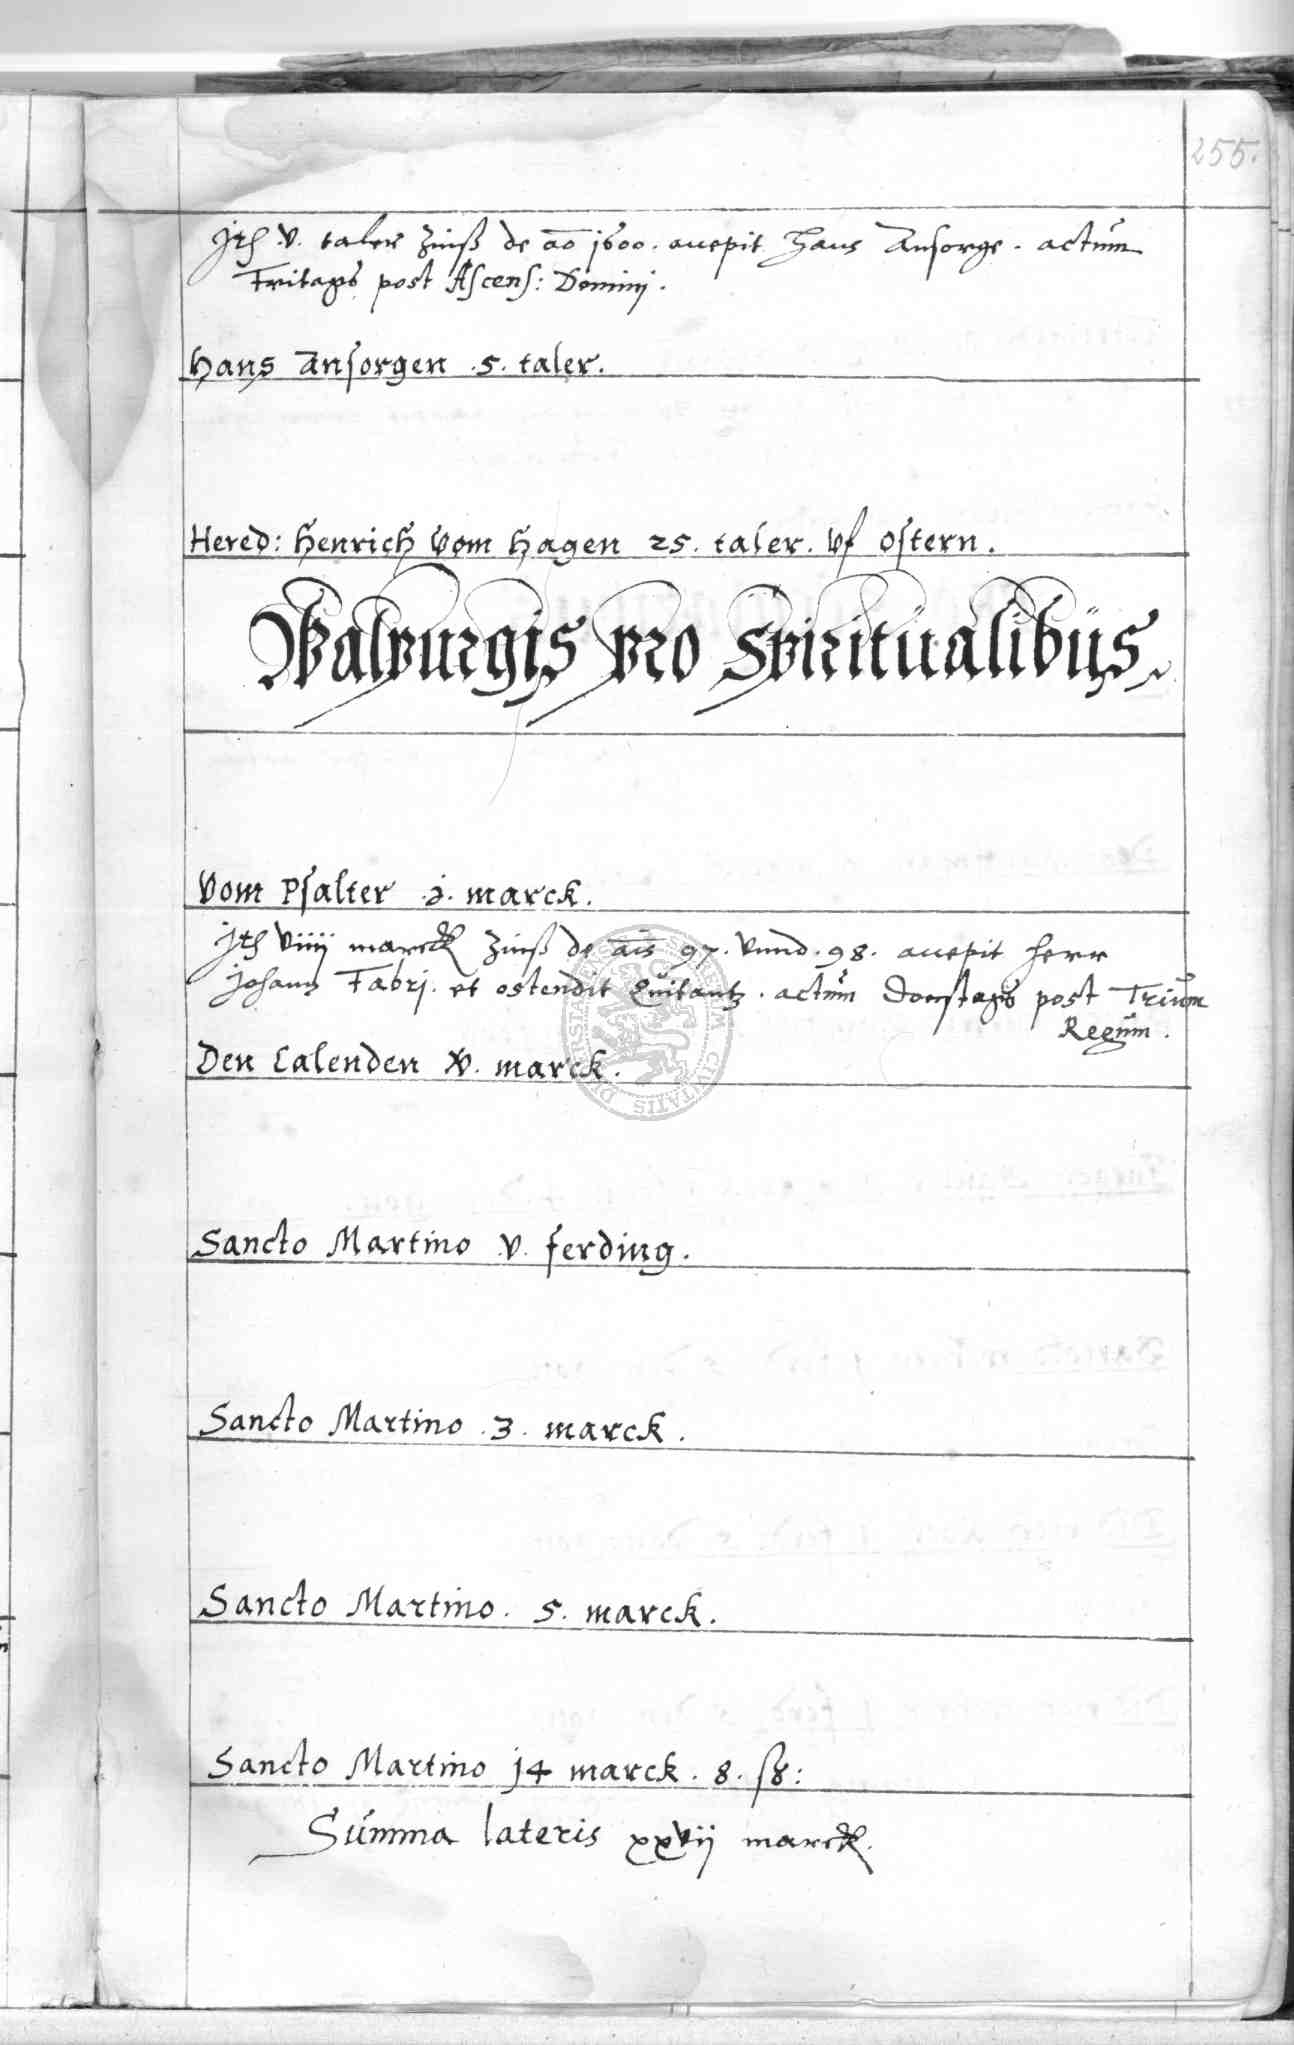 255.
Jtem .v. taler Zinß de ao 1600. accepit Hans Ansorge. actum
Fritags post Ascens: Dominj.
Hans Ansorgen .5. taler.
Hered: Henrich vom Hagen 25. taler. vf ostern.
Walpurgis pro Spiritualibus.
Vom Psalter .j. marck.
Jtem viiij marck Zinß de ais 97. vnnd .98. accepit herr
Johann Fabrj. et ostendit Quitantz. actum Donstags post Trium
Regum.
Den Calenden .v. marck.
Sancto Martino .v. ferding.
Sancto Martino .3. marck.
Sancto Martino. 5. marck.
Sancto Martino j4 marck. 8. ß:
Summa lateris xxvij marck.